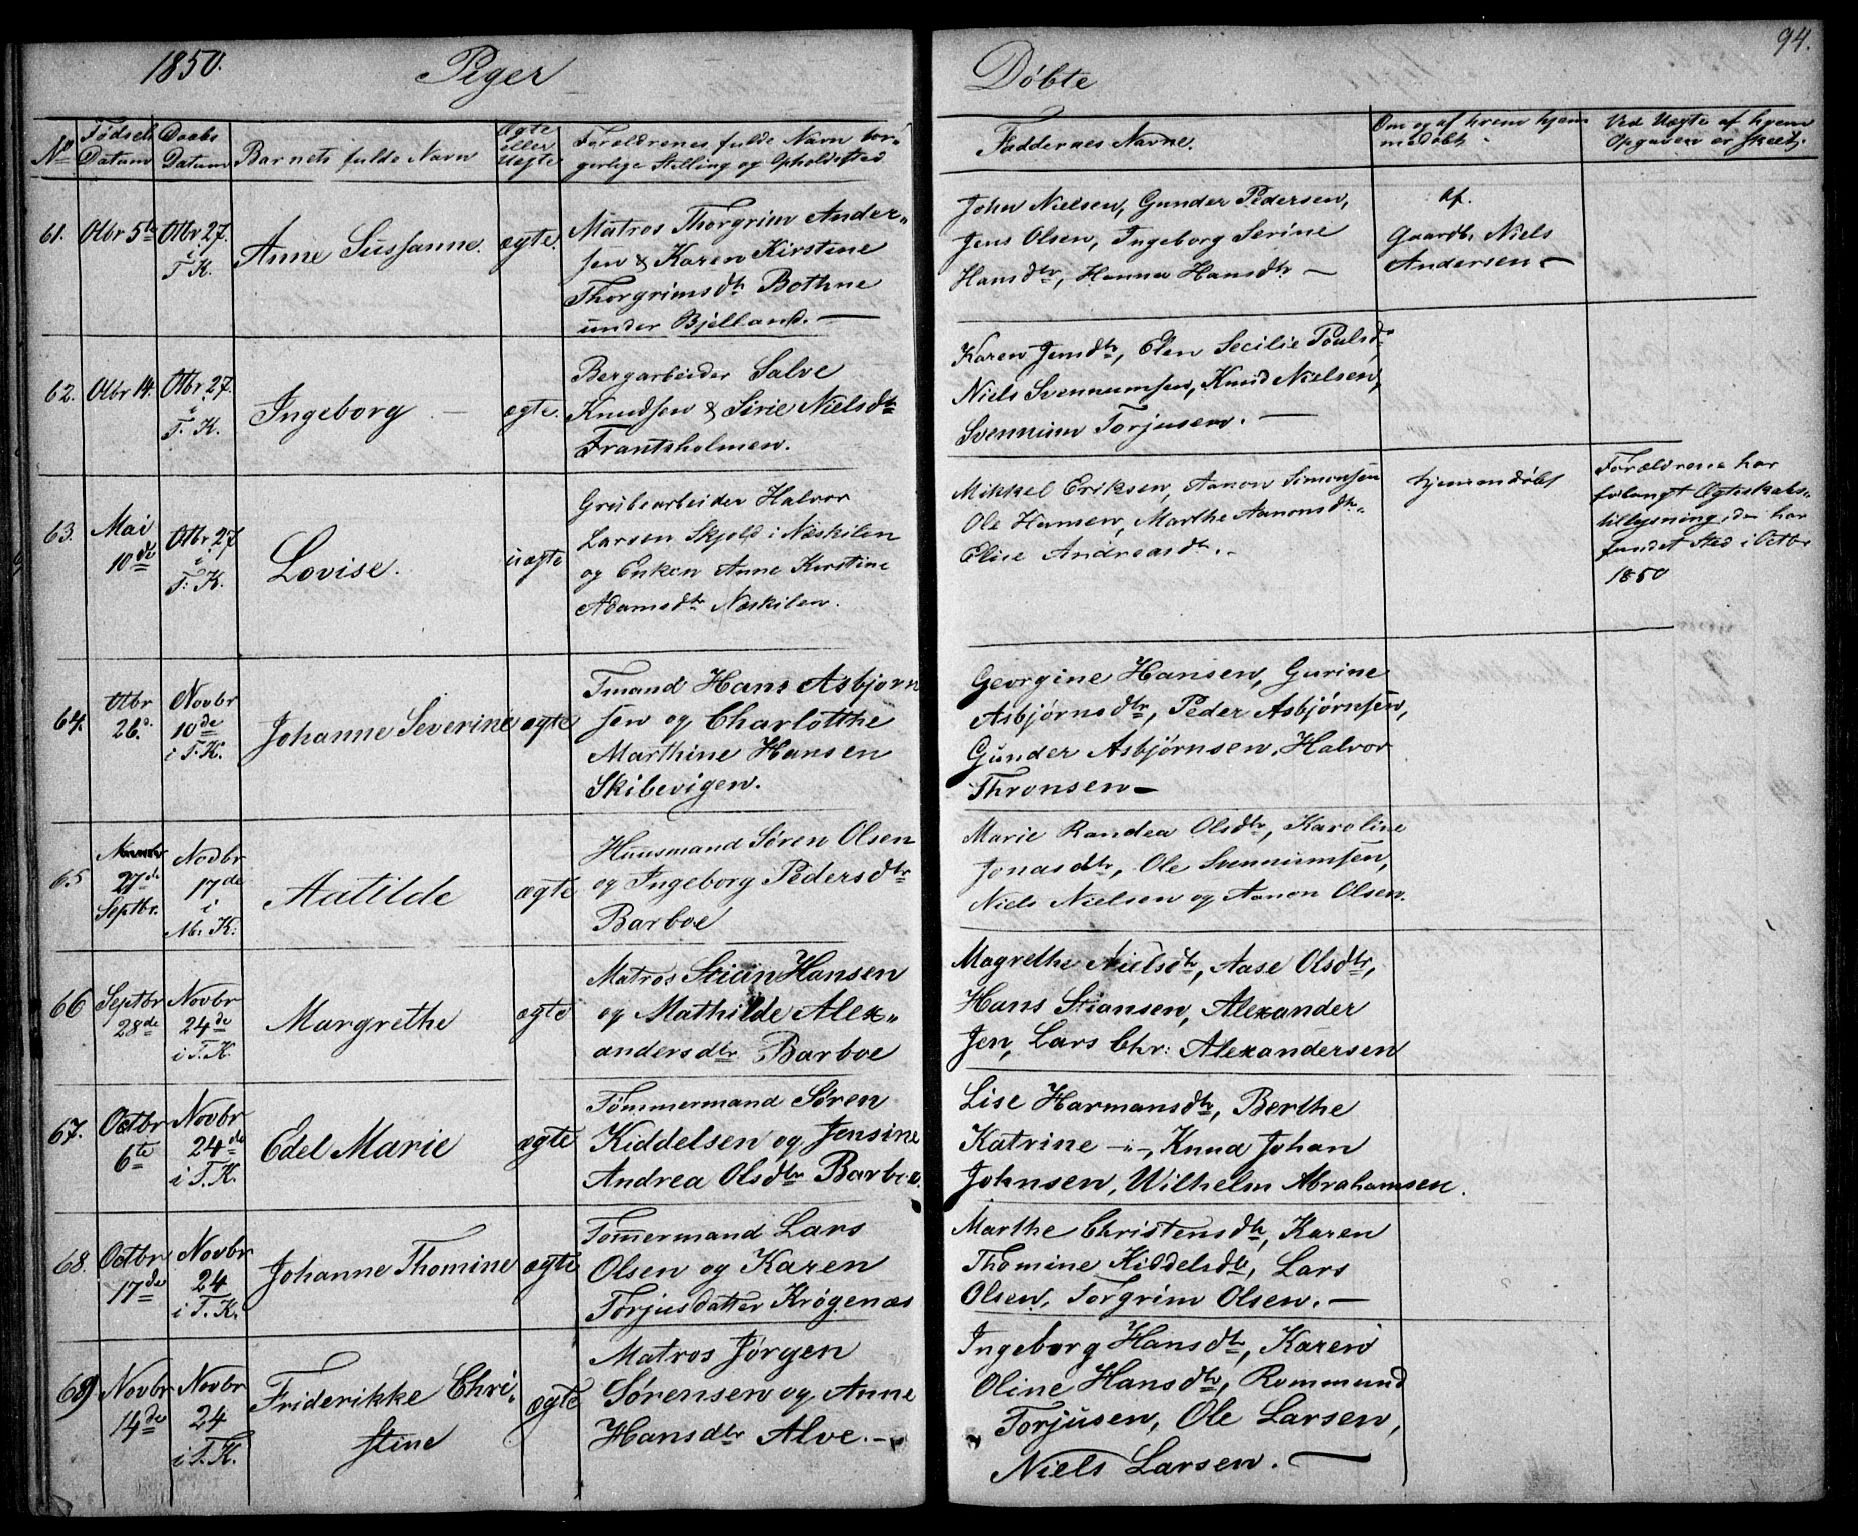 1850. Peger Døbte 94.
No Fødsels Datum Daabs Datum Barnets fulde Navn Ægte eller Uægte Forældrenes fulde Navn bor-
gerlige Stilling og Opholdssted Faddernes Navne. Om og af hvem hjem-
medøbt Ved Uægte af hvem
Opgaven er skeet.
61. Otbr 5te Otbr 27. i T. K. Anne Sussanne. ægte.
Matros Thorgrim Ander-
sen & Karen Kirstine
Thorgrimsdtr Bothne
under Bjelland. —
John Nielsen, Gunder Pedersen,
Jens Olsen, Ingeborg Serine
Hansdtr, Hanna Hansdtr —
af.
Gaardb. Niels
Andersen —
62. Otbr 14. Otbr 27. i T. K. Ingeborg — ægte.
Bergarbeider Salve
Knudsen & Sirie Nielsdtr
Frantsholmen.
Karen Jensdtr, Elen Secilie Poulsd.
Niels Svennumsen, Knud Nielsen,
Svennum Torjusen. —
63. Mai 10de Otbr 27 i T. K. Lovise. uægte
Grubearbeider Halvor
Larsen Skjold i Næskilen
og Enken Anne Kirstine
Adamsdtr Næskilen.
Mikkel Eriksen, Aanon Simonsen
Ole Hansen, Marthe Aanonsdtr.
Elise Andreasdtr. -
hjemmedøbt
Forældrene har
forlangt Ægteskabs-
tillysning, der har
fundet Sted i Octbr
1850
64. Otbr 26d. Novbr 10de i T. K. Johanne Severine ægte
Tmand Hans Asbjørn
sen og Charlotthe
Marthine Hansen
Skibevigen.
Georgine Hansen, Gurine
Asbjørnsdtr, Peder Asbjørnsen,
Gunder Asbjørnsen, Halvor
Thronsen —
65 27de Septbr. Novbr 17de i M. K. Aatilde ægte
Huusmand Søren Olsen
og Ingeborg Pedersdtr
Barboe
Marie Randea Olsdtr, Karoline
Jonasdtr, Ole Svennumsen,
Niels Nielsen og Aanon Olsen.
66 Septbr 28de Novbr 24de i T. K. Margrethe ægte
Matros Stian Hansen
og Mathilde Alex-
andersdtr Barboe
Magrethe Nielsdtr, Aase Olsdtr,
Hans Stiansen, Alexander
Jen, Lars Chr: Alexandersen
67. Octbr 6te Novbr 24de i T. K. Edel Marie ægte
Tømmermand Søren
Kiddelsen og Jensine
Andrea Olsdtr Barboe.
Lise Harmansdtr, Berthe
Katrine -"-, Knud Johan
Johnsen, Wilhelm Abrahamsen.
68. Octbr 17de Novbr 24 i T. K. Johanne Thomine ægte
Tømermand Lars
Olsen og Karen
Torjusdatter Krøgenæs
Marthe Christensdtr, Karen
Thomine Kiddelsdtr, Lars
Olsen, Torgrim Olsen. —
69 Novbr 14de Novbr 24 i T. K. Friderikke Chri-
stine ægte
Matros Jørgen
Sørensen og Anne
Hansdtr Alve. —
Ingeborg Hansdtr, Karen
Oline Hansdtr, Rommund
Torjusen, Ole Larsen,
Niels Larsen. —